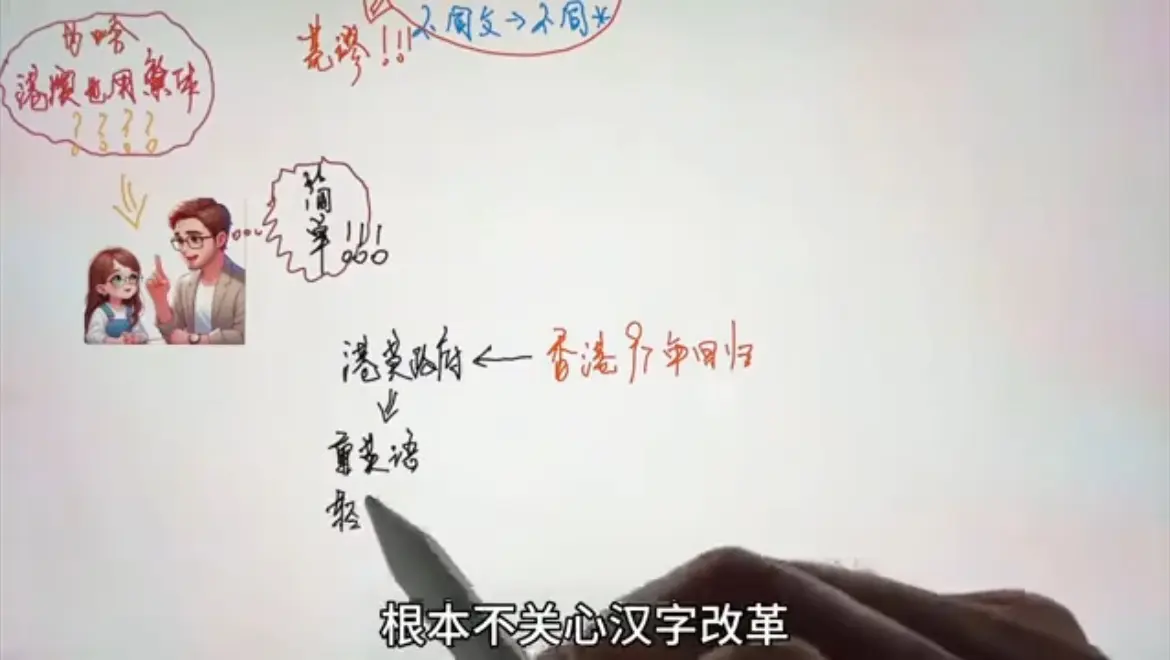 为啥
港澳也用繁体
????
荒谬!!!
不同文→不同*
简单!!!
港英政府←香港97年回归
重英语
轻
根本不关心汉字改革